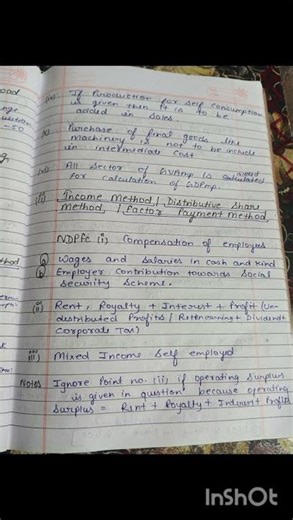 (iv) If Production for self consumption
is given then it is to be
added in sales.
(v) Purchase of final goods like
machinery is not to be include
in intermediate cost
(vi) All sector of GVAmp is calculated
for calculation of GDPmp.
Income Method, Distributive Share
Method, Factor Payment Method,
NDPfc (i) Compensation of employees
(a) Wages and Salaries in cash and kind
(b) Employer Contribution towards Social
Security Scheme.
(ii) Rent, Royalty + Interest + Profit (Un-
distributed Profits / Ret Earning + Dividend +
Corporate Tax)
(iii) Mixed Income Self employed
Notes Ignore Point no. (ii) if operating surplus
is given in question because operating
Surplus = Rent + Royalty + Interest + Profits
InShOt